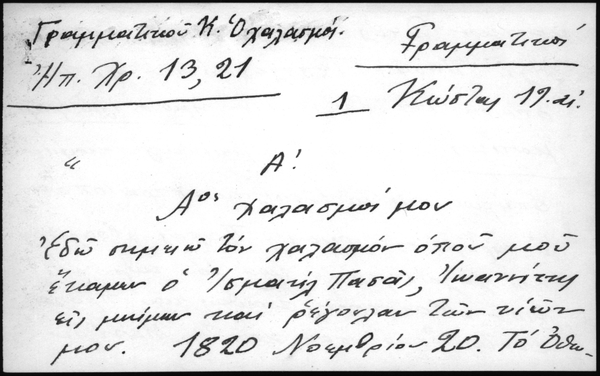 Γραμματικοῦ Κ. Ὁ χαλασμός.
Ἠπ. Χρ. 13, 21
Γραμματικοῦ
1 Κώστας 19. αἰ.
“ Α!
Αος χαλασμός μου
Ἐδῶ σημειῶ τόν χαλασμόν ὁποῦ μοῦ
ἔκαμεν ὁ Ἰσμαήλ Πασᾶς, Ἰωαννίτης
εἰς μνήμην καί ρέγουλαν τῶν υἱῶν
μου. 1820 Νοεμβρίου 20. Τό Ὀθω-